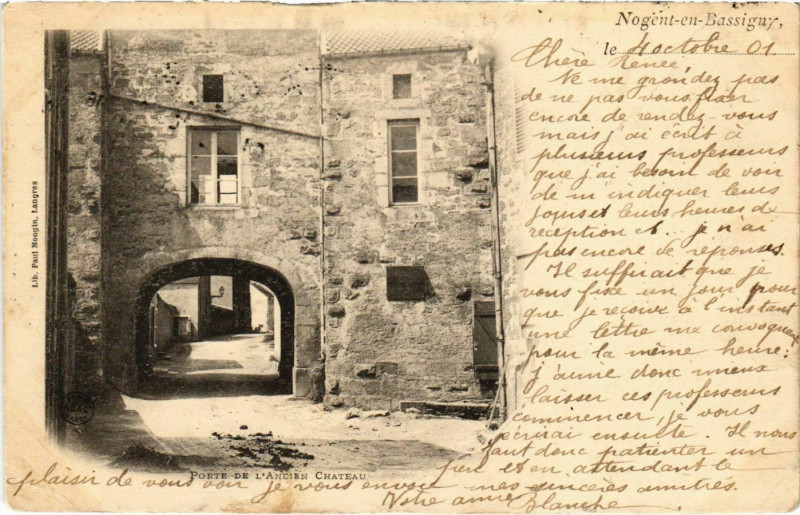 Nogent-en-Bassigny,
le 4 octobre 01
Chère Renée,
Ne me grondez pas
de ne pas vous fixer
encore de rendez-vous
mais j'ai écrit à
plusieurs professeurs
que j'ai besoin de voir
de m'indiquer leurs
jours et leurs heures de
réception et... je n'ai
pas encore de réponses.
Il suffirait que je
vous fixe un jour pour
que je reçoive à l'instant
une lettre me convoquant
pour la même heure:
j'aime donc mieux
laisser ces professeurs
commencer, je vous
écrirai ensuite. Il nous
faut donc patienter un
peu et en attendant le
plaisir de vous voir je vous envoie mes sincères amitiés.
Votre amie Blanche
PORTE DE L'ANCIEN CHATEAU
Lib. Paul Mougin, Langres